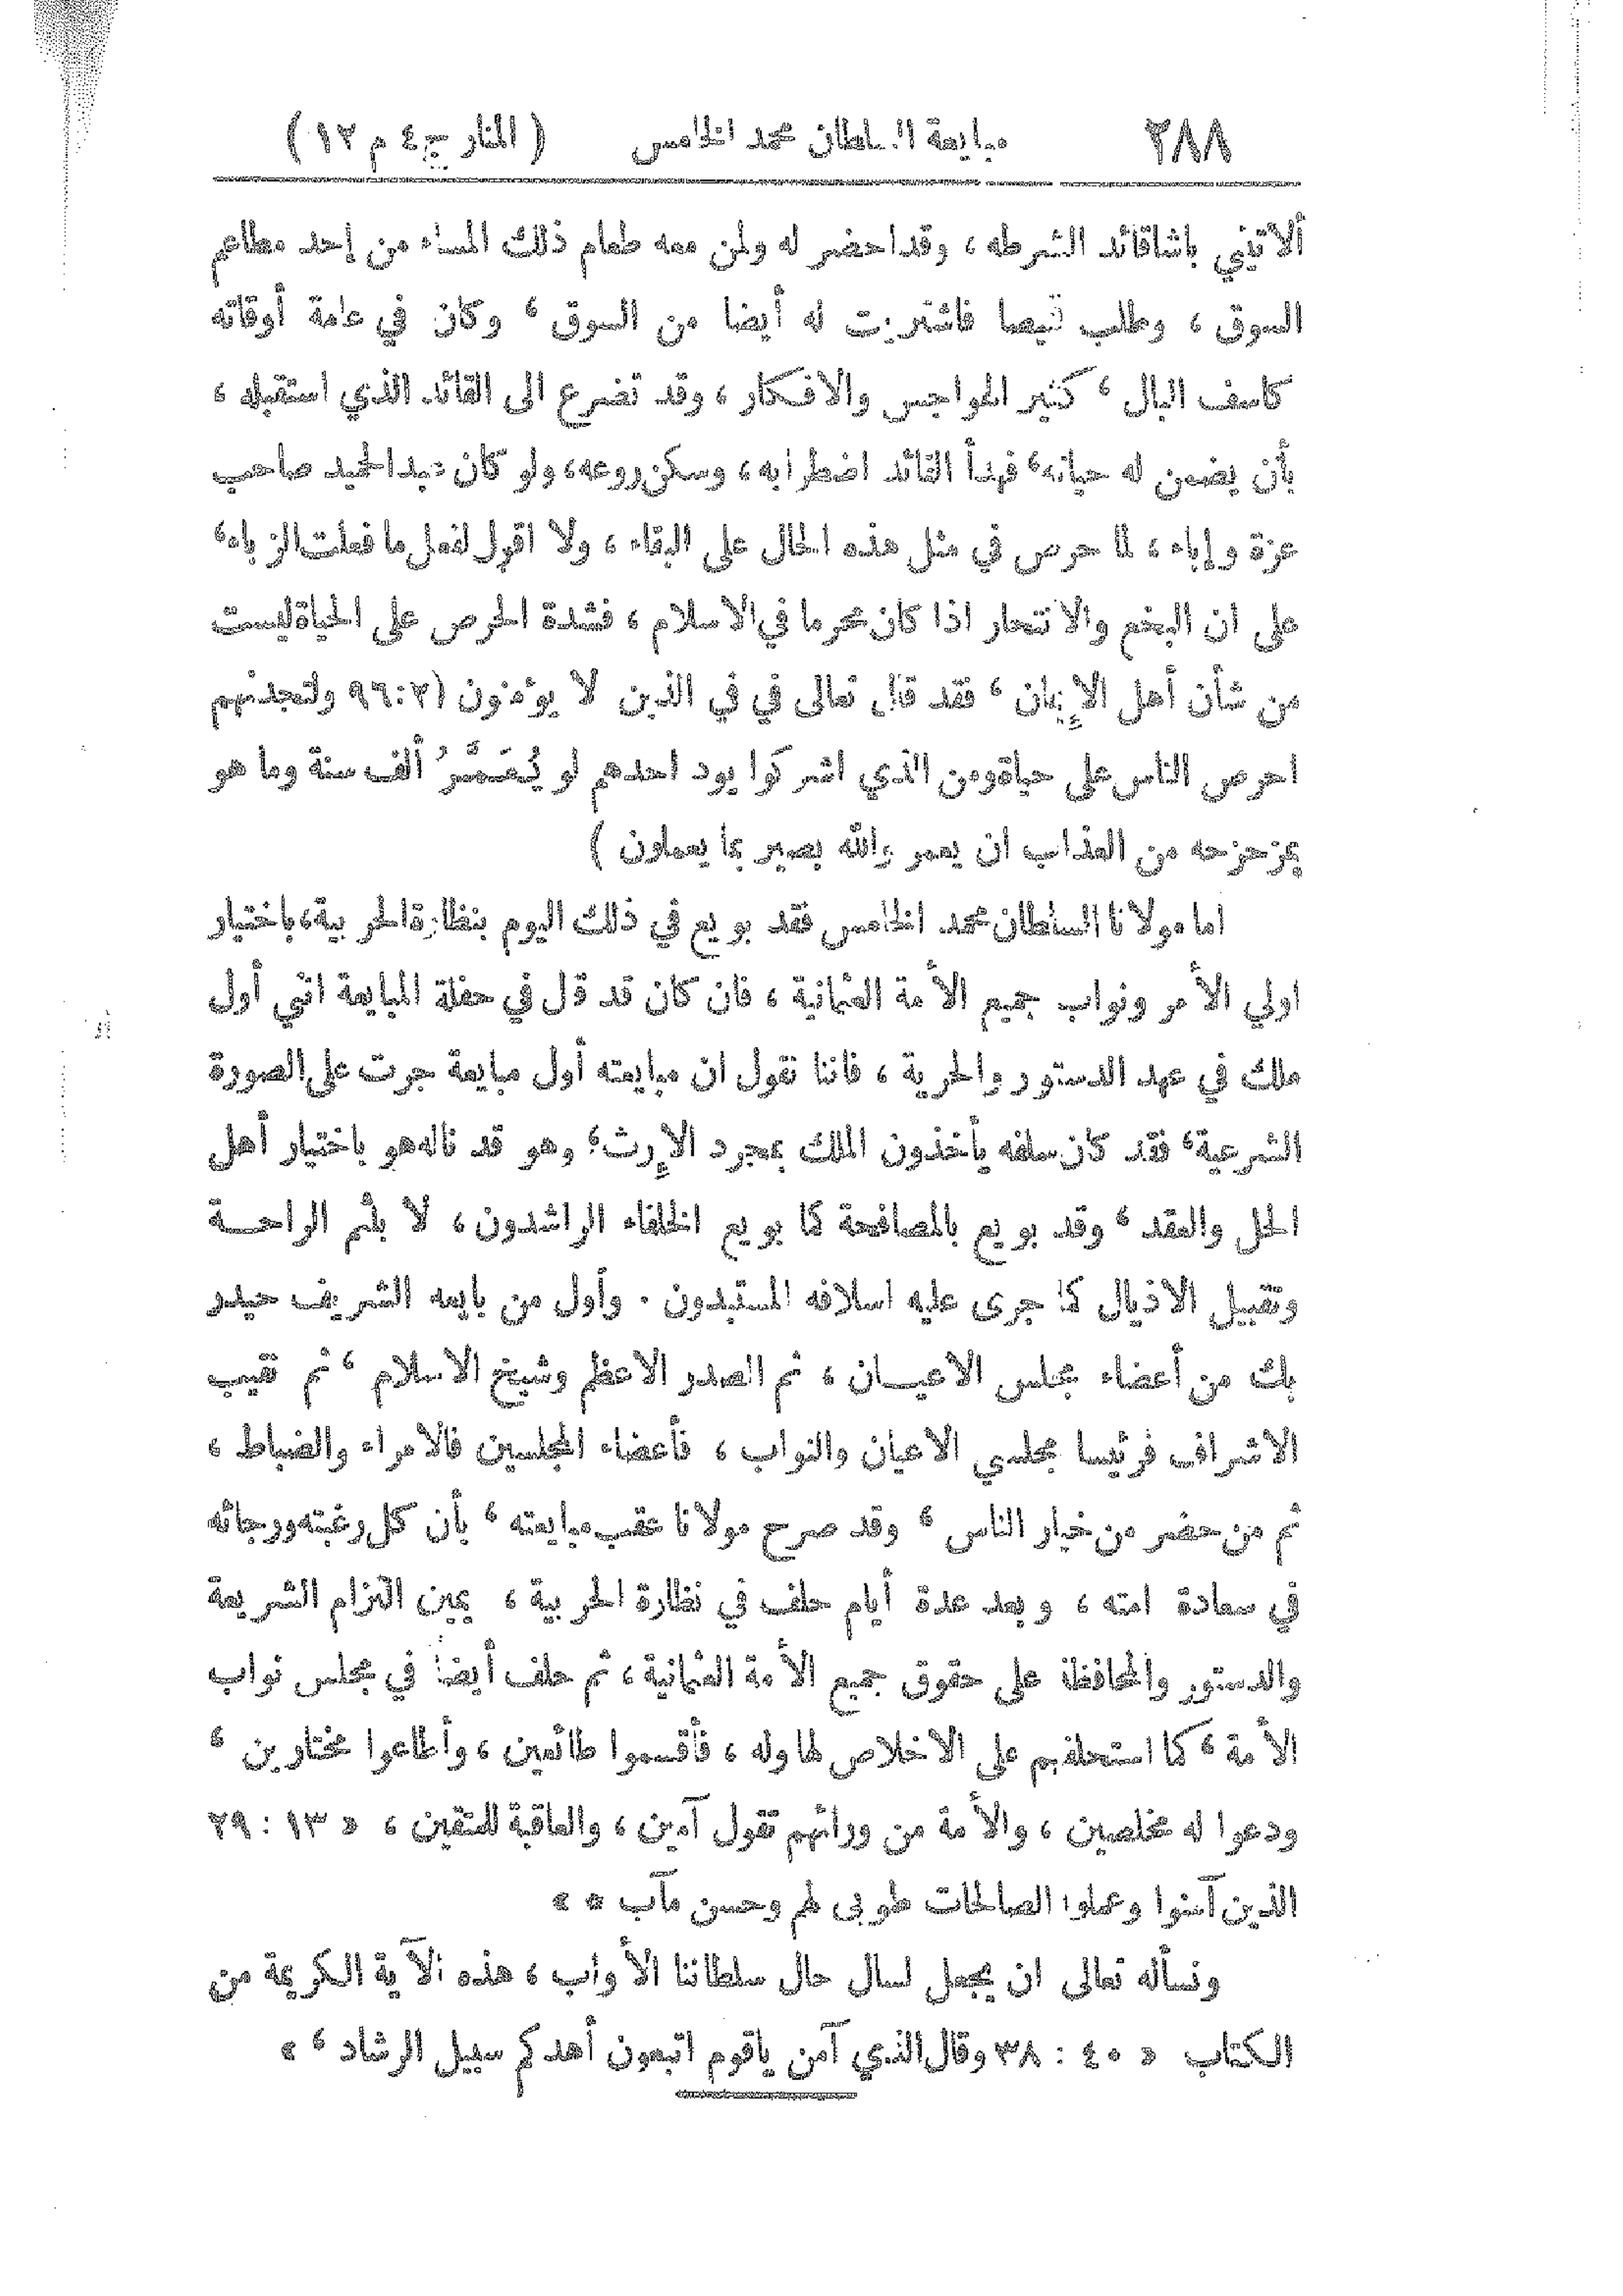 ٢٨٨ مبايعة السلطان محمد الخامس ( المنار ج ٤ م ١٢ )
ألاتيني باشاقائد الشرطه ، وقداحضر له ولمن معه طعام ذلك المساء من إحد مطاعم
السوق ، وطلب قميصا فاشتريت له أيضا من السوق ، وكان في عامة أوقاته
كاسف البال ، كثير الهواجس والافكار ، وقد تضرع الى القائد الذي استقبله ،
بأن يضمن له حياته ، فهدأ القائد اضطرابه ، وسكن روعه ، ولو كان عبدالحميد صاحب
عزة وإباء ، لما حرص في مثل هذه الحال على البقاء ، ولا اقول لفعل ما فعلت الزباء ،
على ان البخع والانتحار اذا كان محرما في الاسلام ، فشدة الحرص على الحياة ليست
من شأن أهل الإيمان ، فقد قال تعالى في في الذين لا يؤمنون (٩٦:٢ ولتجدنهم
احرص الناس على حياة ومن الذي اشركوا يود احدهم لو يُعَمَّرُ ألف سنة وما هو
بمزحزحه من العذاب ان يعمر والله بصير بما يعملون )
اما مولانا السلطان محمد الخامس فقد بويع في ذلك اليوم بنظارة الحربية ، باختيار
اولي الأمر ونواب جميع الأمة العثمانية ، فان كان قد قال في حفلة المبايعة انني أول
ملك في عهد الدستور والحرية ، فاننا نقول ان مبايعته أول مبايعة جرت على الصورة
الشرعية ، فقد كان سلفه يأخذون الملك بمجرد الإرث ، وهو قد ناله هو باختيار أهل
الحل والعقد ، وقد بويع بالمصافحة كما بويع الخلفاء الراشدون ، لا بلثم الراحة
وتقبيل الاذيال كما جرى عليه اسلافه المستبدون . وأول من بايعه الشريف حيدر
بك من أعضاء مجلس الاعيان ، ثم الصدر الاعظم وشيخ الاسلام ، ثم نقيب
الاشراف فرئيسا مجلسي الاعيان والنواب ، فأعضاء المجلسين فالامراء والضباط ،
ثم من حضر من خيار الناس ، وقد صرح مولانا عقب مبايعته ، بأن كل رغبته ورجائه
في سعادة امته ، وبعد عدة أيام حلف في نظارة الحربية ، يمين التزام الشريعة
والدستور والمحافظة على حقوق جميع الأمة العثمانية ، ثم حلف أيضا في مجلس نواب
الأمة ، كما استحلفهم على الاخلاص لها وله ، فأقسموا طائعين ، وأطاعوا مختارين ،
ودعوا له مخلصين ، والأمة من ورائهم تقول آمين ، والعاقبة للمتقين ، « ١٣ : ٢٩
الذين آمنوا وعملوا الصالحات طوبى لهم وحسن مآب * »
ونسأله تعالى ان يجعل لسان حال سلطاننا الأواب ، هذه الآية الكريمة من
الكتاب « ٤٠ : ٣٨ وقال الذي آمن ياقوم اتبعون أهدكم سبيل الرشاد ، »